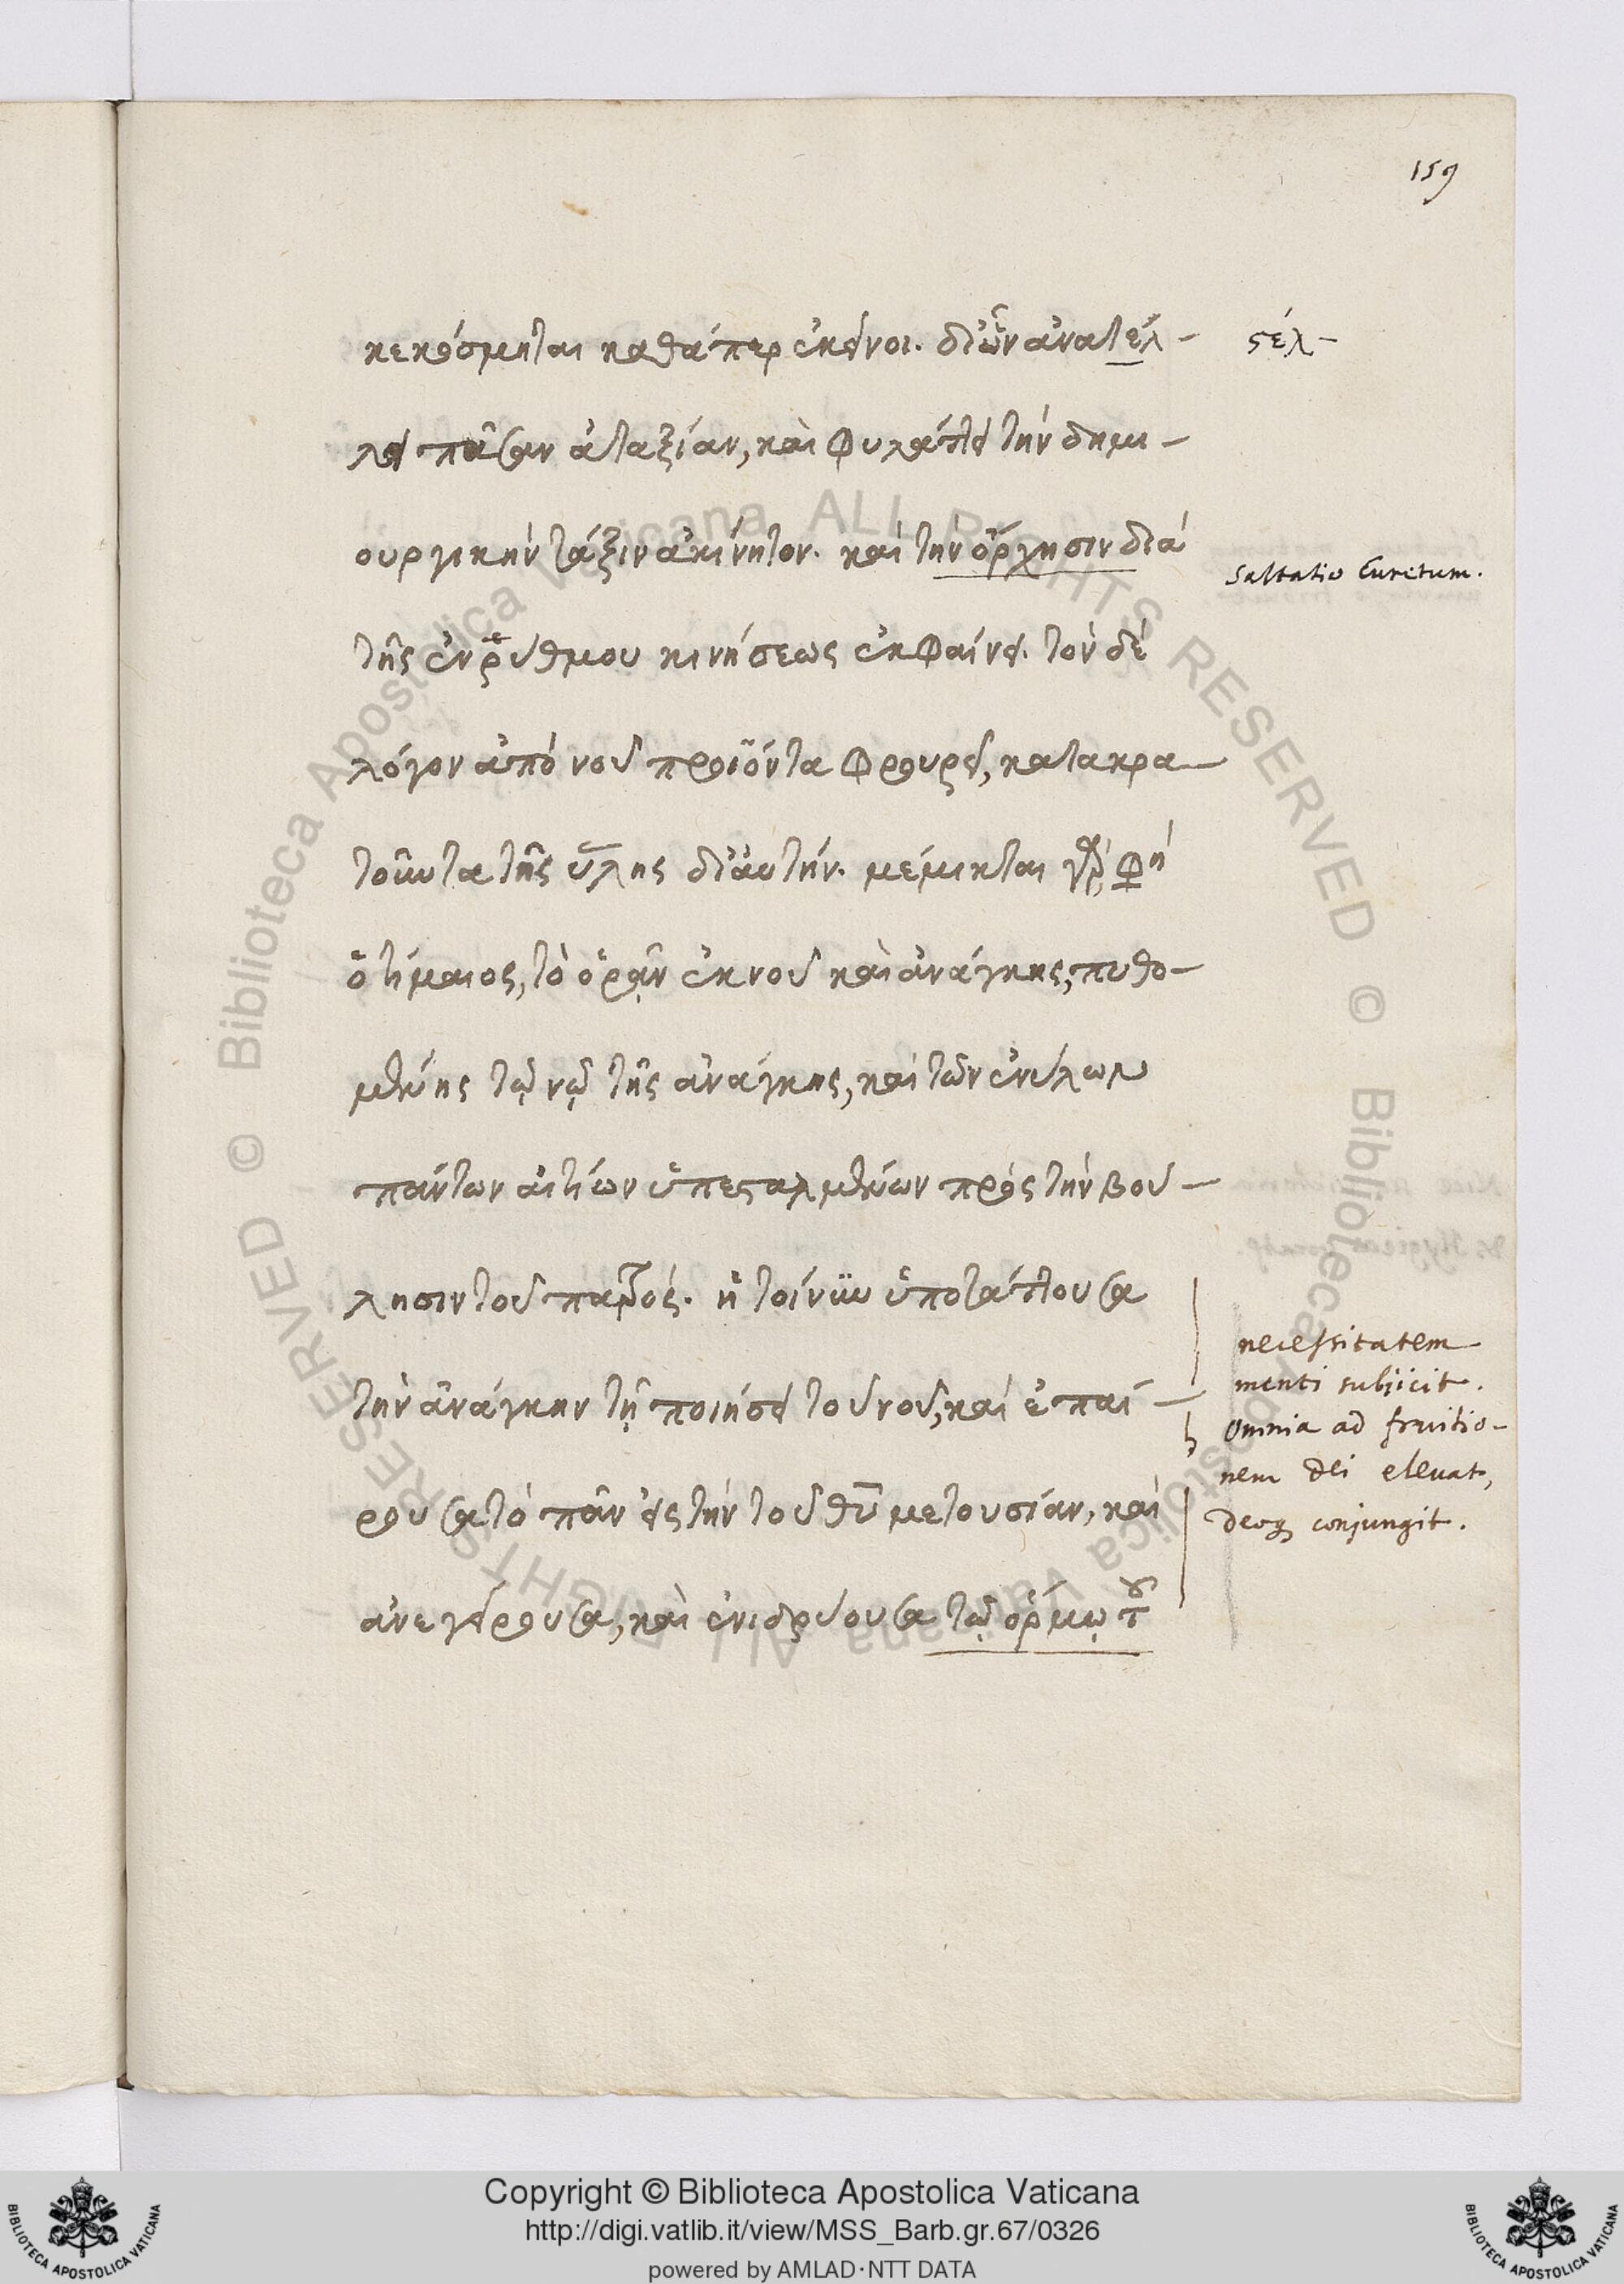 159
κεκόσμηται καθάπερ ἐκεῖνοι. δι' ὧν ἀνατέλ- στέλ-
λει πᾶσαν ἀταξίαν, καὶ φυλάττει τὴν δημι-
ουργικὴν τάξιν ἀκίνητον. καὶ τὴν ὄρχησιν διὰ
saltatio Curetum.
τῆς ἐνρύθμου κινήσεως ἐκφαίνει. τὸν δὲ
λόγον ἀπὸ νοῦ προϊόντα φρουρεῖ, κατακρα-
τοῦντα τῆς ὕλης δι' αὐτήν. μέμικται γὰρ, φη
ὁ τίμαιος, τὸ ὁρᾷν ἐκ νοῦ καὶ ἀνάγκης, πυθο-
μένης τῷ νῷ τῆς ἀνάγκης, καὶ τῶν ἐνύλων
πάντων αἰτίων ὑπεσταλμένων πρὸς τὴν βού-
λησιν τοῦ πατρός. ἡ τοίνυν ὑποτάττουσα
τὴν ἀνάγκην τῇ ποιήσει τοῦ νοῦ, καὶ ἐπαί-
ρουσα τὸ πᾶν εἰς τὴν τοῦ θυ μετουσίαν, καὶ
ἀνεγείρουσα, καὶ ἐνιδρύουσα τῷ ὅρμῳ τοῦ
necessitatem
menti subjicit.
Omnia ad fruitio-
nem Dei elevat,
deoq conjungit.
Copyright © Biblioteca Apostolica Vaticana
http://digi.vatlib.it/view/MSS_Barb.gr.67/0326
powered by AMLAD·NTT DATA